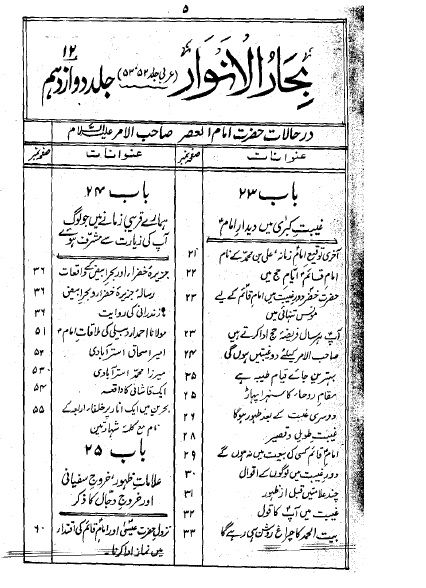 ۵
بحار الانوار (عربی جلد ۵۲، ۵۳) جلد دوازدہم ۱۲
در حالات حضرت امام العصر صاحب الامر علیہ السلام
عنوانات صفحہ نمبر
باب ۲۳
غیبتِ کبریٰ میں دیدارِ امامؑ
آخری توقیع امامِ زمانہؑ علی بن محمد کے نام ۲۱
امام قائمؑ ایامِ حج میں ۲۲
حضرت خضرؑ دورِ غیبت میں امام قائمؑ کے لیے مونسِ تنہائی ہیں ۲۲
آپؑ ہر سال فریضۂ حج ادا کرتے ہیں ۲۳
صاحب الامرؑ کیلئے دو غیبتیں ہوں گی ۲۴
بہترین جائے قیام طیبہ ہے ۲۵
مقامِ روحاء کا سنہرا پہاڑ ۲۵
دوسری غیبت کے بعد ظہور ہوگا ۲۶
غیبتِ طویل و قصیر ۲۸
امام قائم کسی کی بیعت میں نہ ہوں گے ۲۹
دورِ غیبت میں لوگوں کے اقوال ۳۰
چند علامتیں قبل از ظہور ۳۱
غیبت میں آپؑ کا قول ۳۲
بیت الحمد کا چراغ روشن ہی رہے گا ۳۳
عنوانات صفحہ نمبر
باب ۲۴
ہمارے قریبی زمانے میں جو لوگ
آپ کی زیارت سے مشرف ہوئے
جزیرۂ خضراء اور بحر ابیض کے واقعات ۳۶
رسالہ جزیرۂ خضراء و بحر ابیض ۳۶
مازندرانی کی روایت ۳۶
مولانا احمد اردبیلی کی ملاقاتِ امامؑ ۵۱
امیر اسحاق استرآبادی ۵۲
میرزا محمد استرآبادی ۵۳
ایک قاشانی کا واقعہ ۵۴
بحرین میں ایک انار پر خلفاء اربعہ کے ۵۵
نام مع کلمۂ شہادتین
باب ۲۵
علاماتِ ظہور، خروجِ سفیانی
اور خروجِ دجال کا ذکر
نزولِ حضرت عیسیٰؑ اور امام قائمؑ کی اقتداء ۶۰
میں نماز ادا کرنا۔